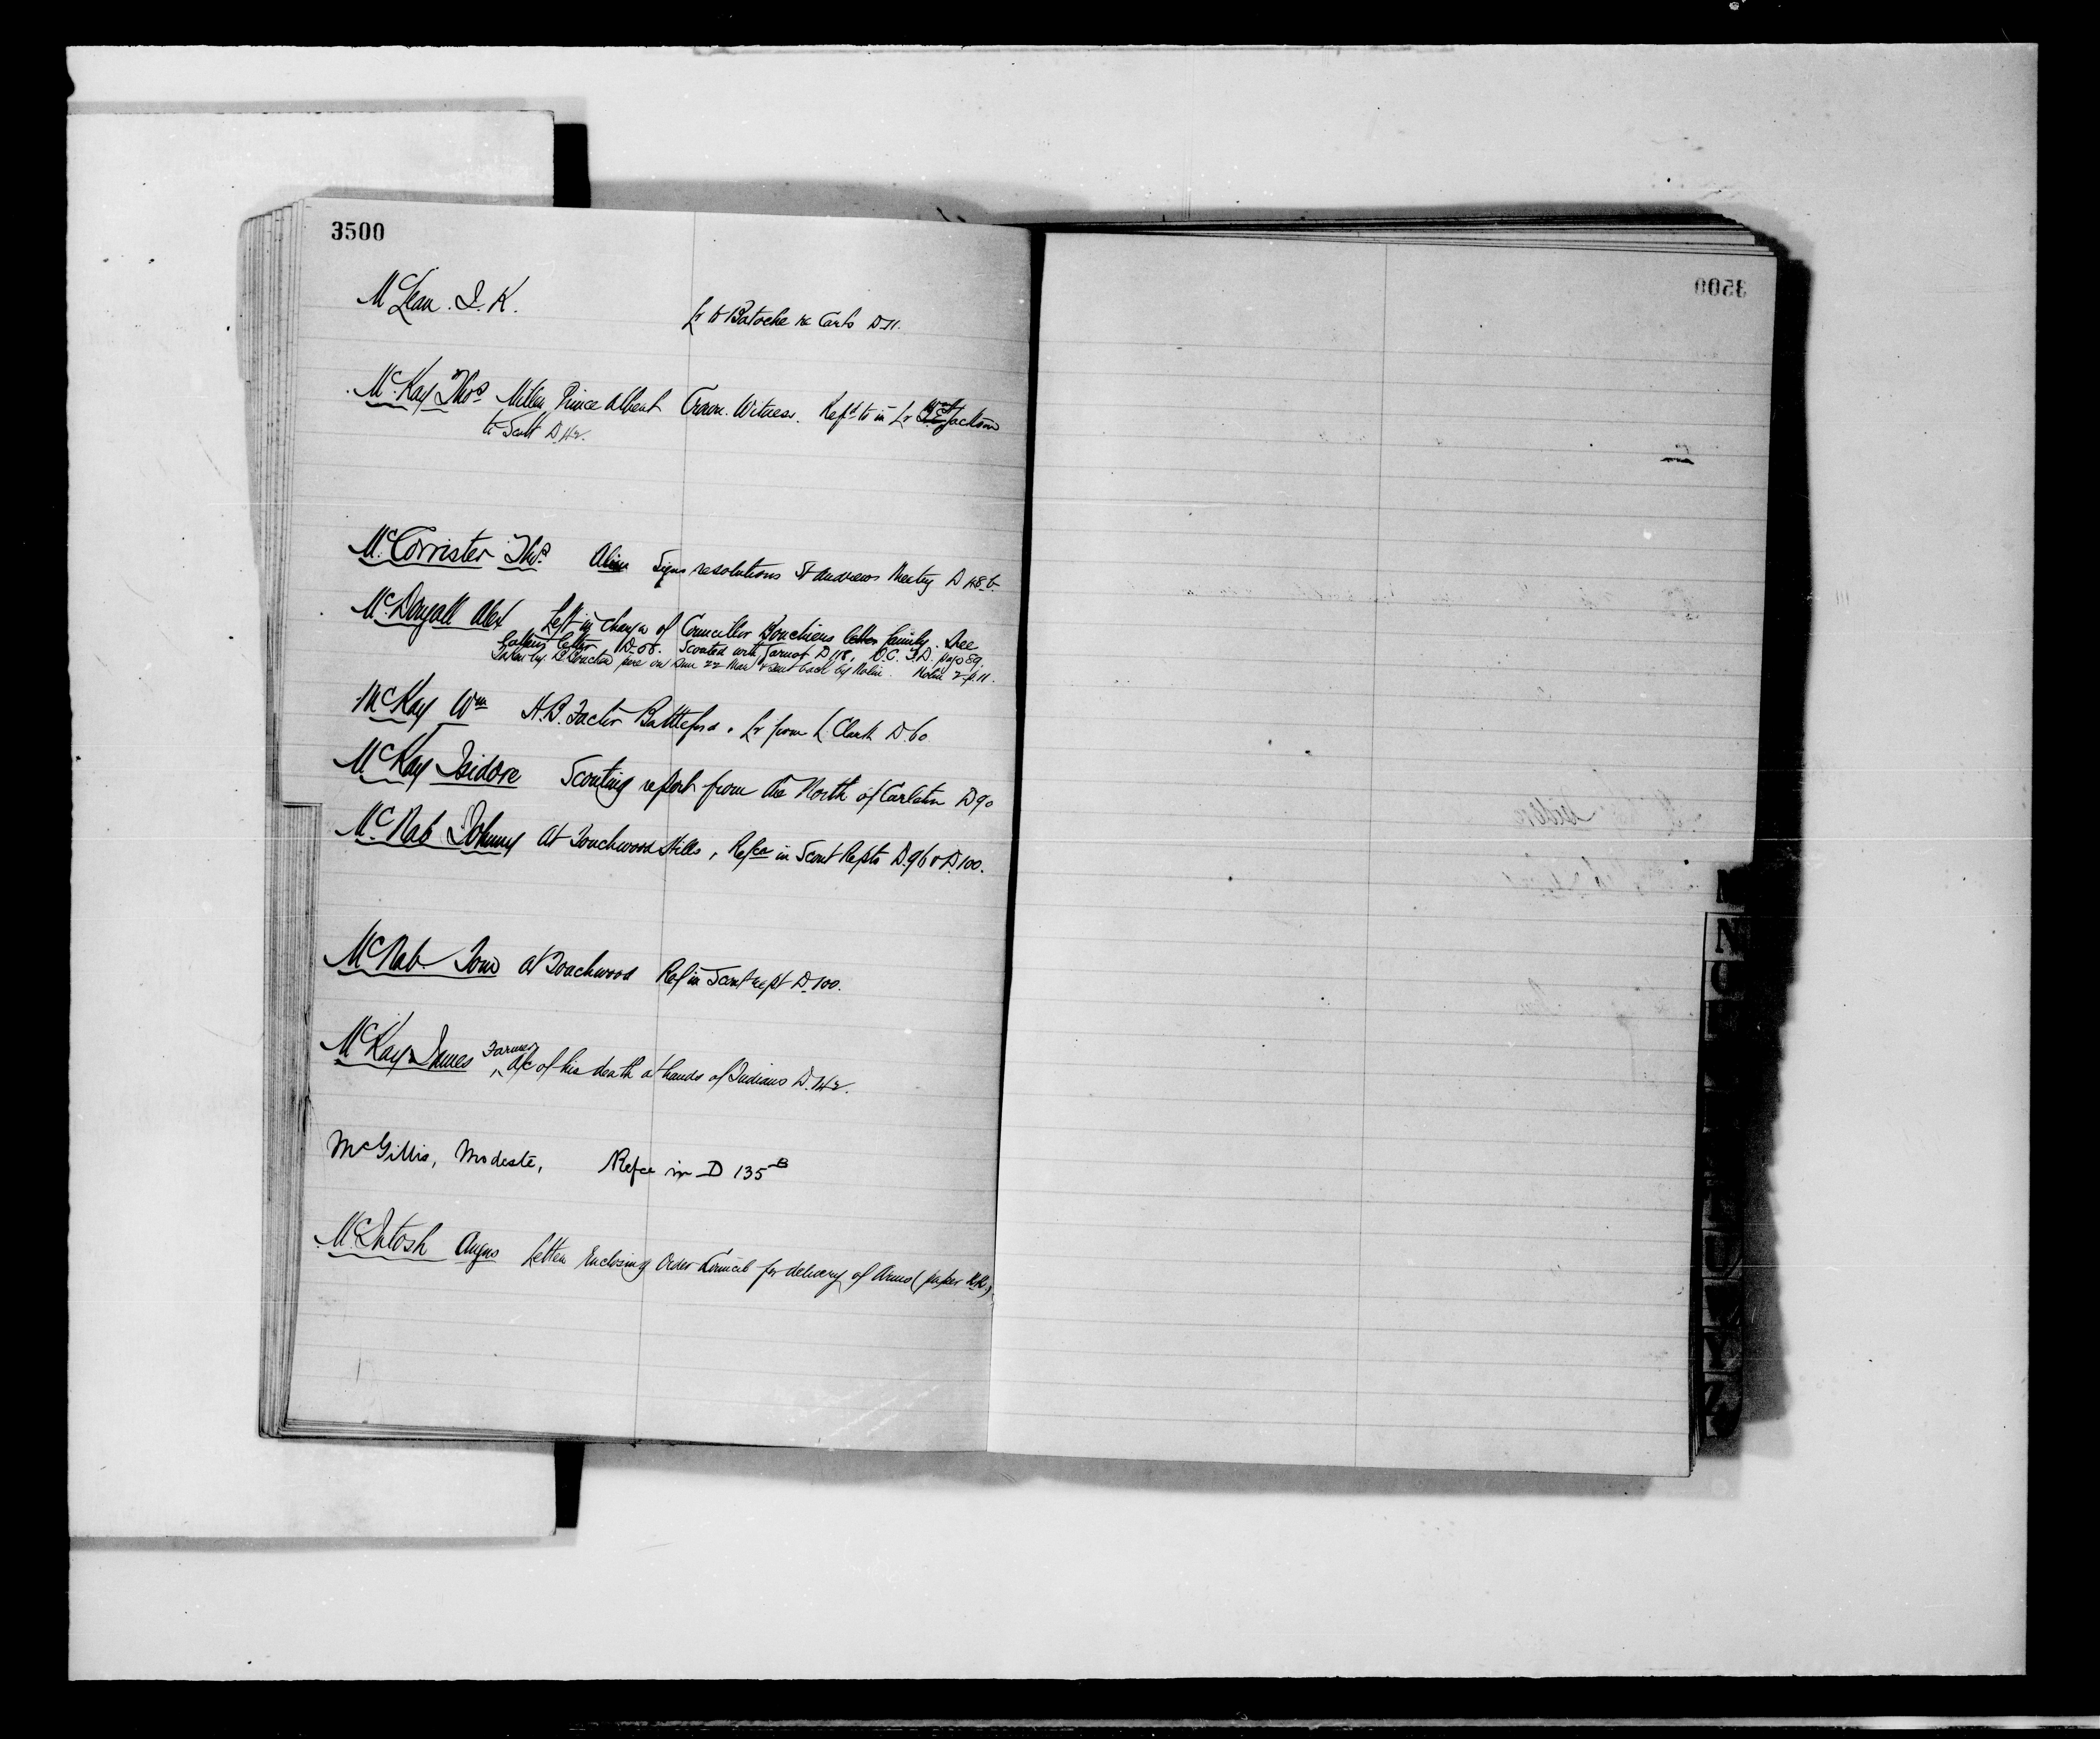 3500
McLean. J. K. Lr to Batoche re Carts D 11.
McKay Thos Miller Prince Albert Crown Witness. Refd to in Lr Jackson
to Scott D 42.
McCorrister Thos. Signs resolutions St Andrews Meeting D 48 b
McDougall Alex Left in charge of Councillor Bouchiers letter family. See
letter D-58. Scouted with D 118. O.C. page 89.
Taken by on Sun 22 Mar & sent back by Nolin. Nolin 2 p. 11.
McKay Wm H.B. Factor Battleford. Lr from L. Clark D 60
McKay Isidore Scouting report from the North of Carleton D 90
McNab Johnny At Touchwood Hills, Refce in Scout Repts D. 96 & D. 100.
McNab Tom at Touchwood Ref in Scout rept D. 100.
McKay James Farmer a/c of his death at hands of Indians D. 142.
McGillis, Modeste, Refce in D 135 B
McIntosh Angus Letter Enclosing Order Council for delivery of Arms (paper
N
U
W
Y
Z